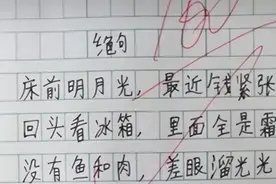 100
绝句
床前明月光，最近钱紧张
回头看冰箱，里面全是霜
没有鱼和肉，差眼溜光光